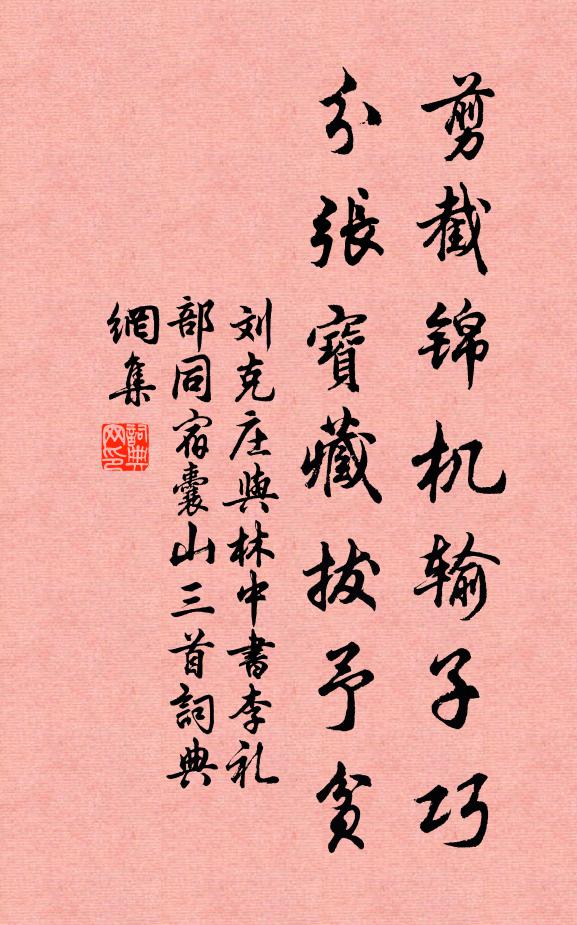 剪截锦机输子巧
分張寶藏拔予貧
刘克庄與林中書李礼
部同宿囊山三首詞典
網集
詞典網印